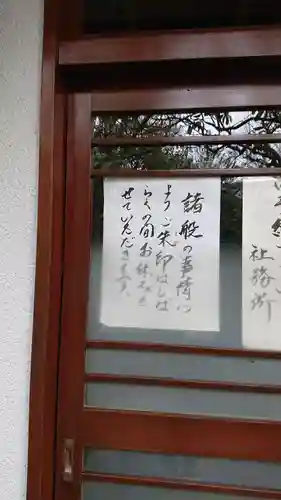 諸般の事情に
よりご朱印はしば
らくの間お休みさ
せていただきます。
社務所